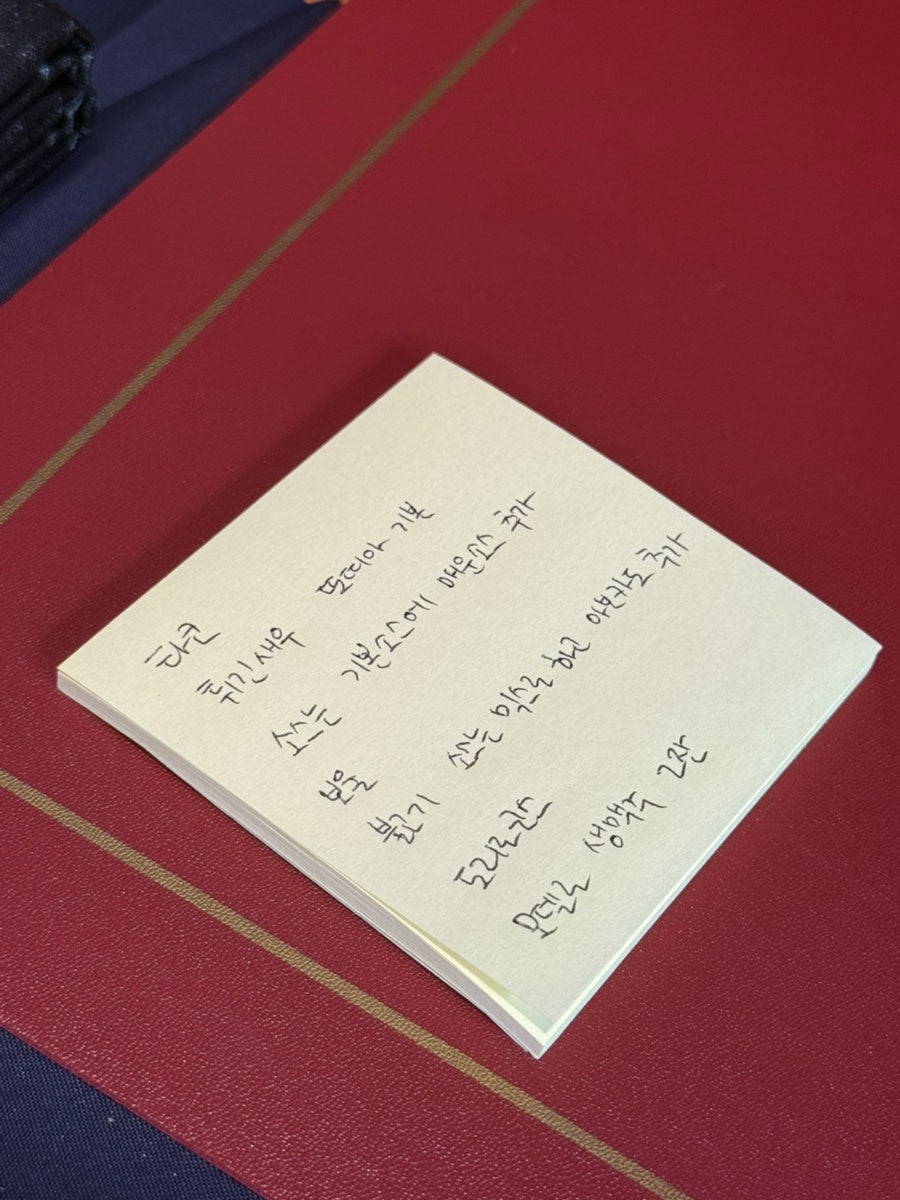 타코
튀긴새우 또띠아 기본
소스는 기본소스에 매운소스 추가
보울
불고기 소스는 믹스로 하고 아보카도 추가
도리로코스
모델로 생맥주 2잔